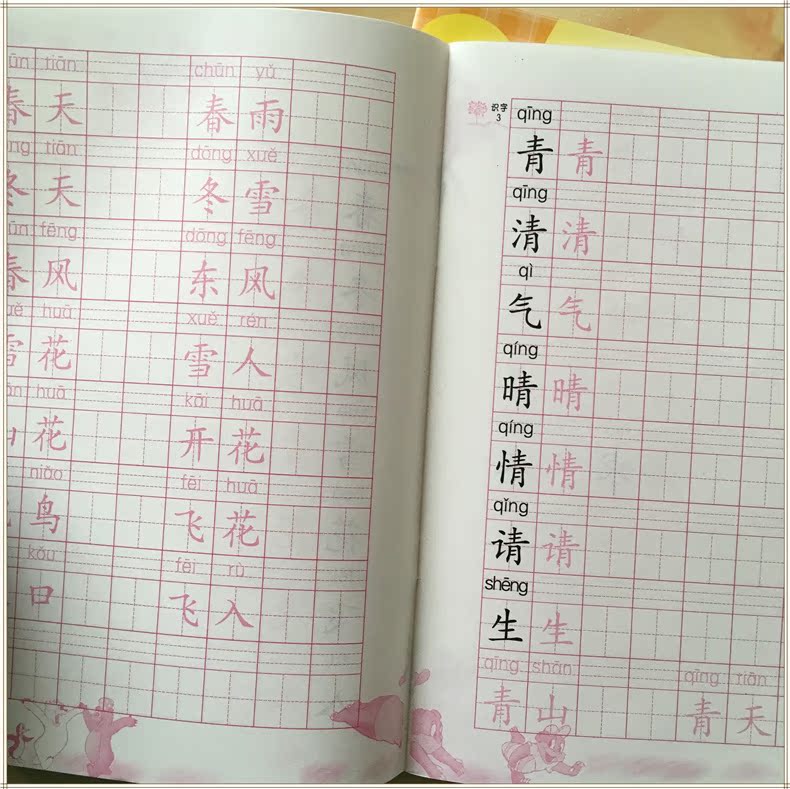 tiān chūn yǔ
春 天 春 雨
tiān dōng xuě
冬 天 冬 雪
fēng dōng fēng
春 风 东 风
huā xuě rén
雪 花 雪 人
huā kāi huā
花 开 花
niǎo fēi huā
鸟 飞 花
kǒu fēi rù
飞 入
识字
3
qīng
青 青
qīng
清 清
qì
气 气
qíng
晴 晴
qíng
情 情
qǐng
请 请
shēng
生 生
qīng shān qīng tiān
青 山 青 天